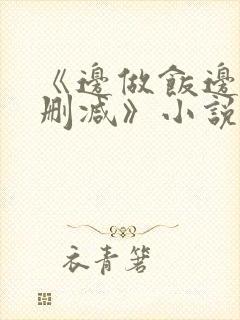 《邊做飯邊
刪减》小說
衣青箬